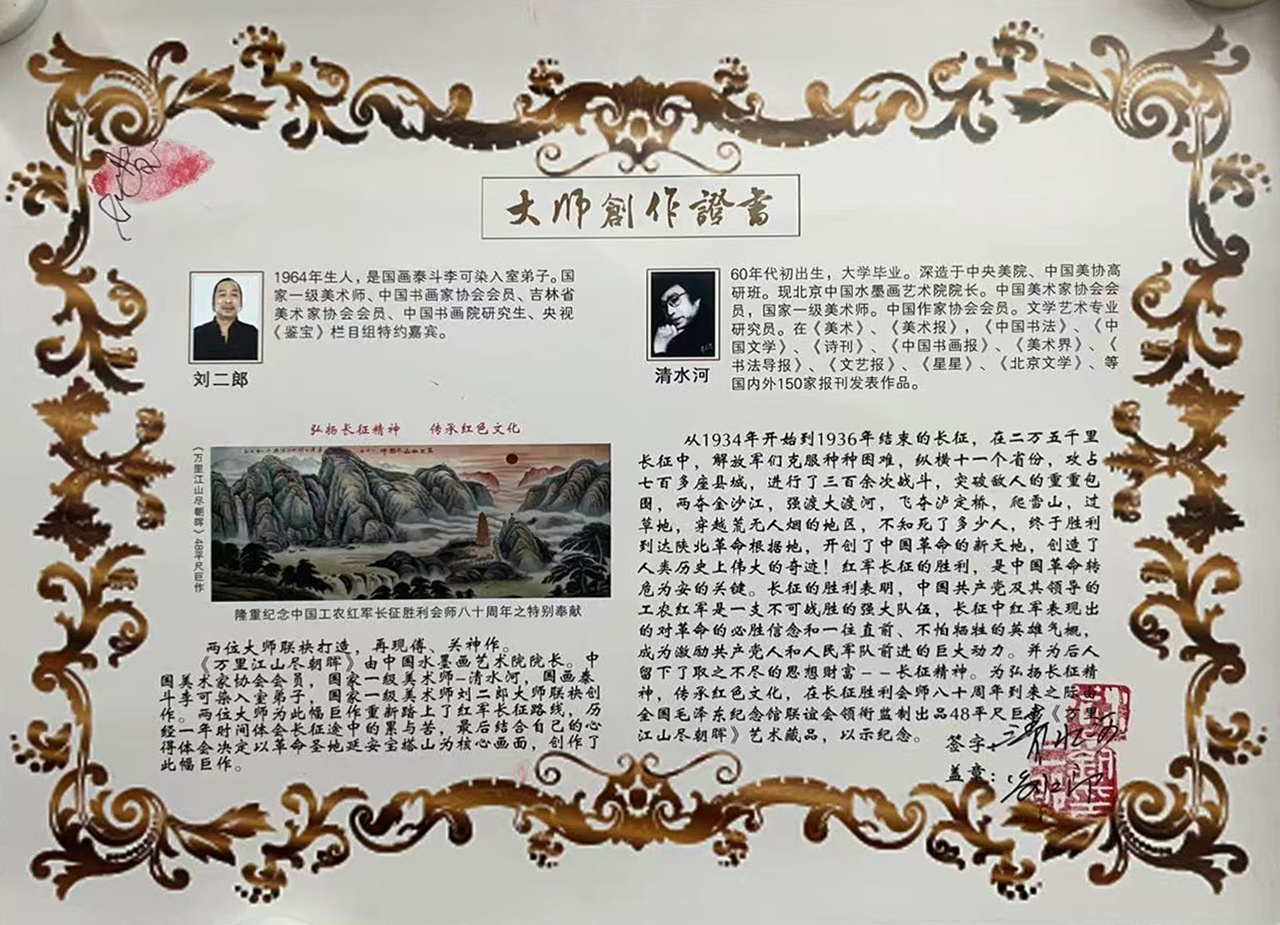 大师創作證書
1964年生人，是国画泰斗李可染入室弟子。国
家一级美术师、中国书画家协会会员、吉林省
美术家协会会员、中国书画院研究生、央视
《鉴宝》栏目组特约嘉宾。
刘二郎
60年代初出生，大学毕业。深造于中央美院、中国美协高
研班。现北京中国水墨画艺术院院长。中国美术家协会会
员，国家一级美术师。中国作家协会会员。文学艺术专业
研究员。在《美术》、《美术报》，《中国书法》、《中
国文学》、《诗刊》、《中国书画报》、《美术界》、《
书法导报》、《文艺报》、《星星》、《北京文学》、等
国内外150家报刊发表作品。
清水河
弘扬长征精神 传承红色文化
《万里江山尽朝晖》48平尺巨作
隆重纪念中国工农红军长征胜利会师八十周年之特别奉献
两位大师联袂打造，再现傅、关神作。
《万里江山尽朝晖》由中国水墨画艺术院院长。中
国美术家协会会员，国家一级美术师-清水河，国画泰
斗李可染入室弟子，国家一级美术师刘二郎大师联袂创
作。两位大师为此幅巨作重新踏上了红军长征路线，历
经一年时间体会长征途中的累与苦，最后结合自己的心
得体会决定以革命圣地延安宝塔山为核心画面，创作了
此幅巨作。
从1934年开始到1936年结束的长征，在二万五千里
长征中，解放军们克服种种困难，纵横十一个省份，攻占
七百多座县城，进行了三百余次战斗，突破敌人的重重包
围，两夺金沙江，强渡大渡河，飞夺泸定桥，爬雪山，过
草地，穿越荒无人烟的地区，不知死了多少人，终于胜利
到达陕北革命根据地，开创了中国革命的新天地，创造了
人类历史上伟大的奇迹！红军长征的胜利，是中国革命转
危为安的关键。长征的胜利表明，中国共产党及其领导的
工农红军是一支不可战胜的强大队伍，长征中红军表现出
的对革命的必胜信念和一往直前、不怕牺牲的英雄气概，
成为激励共产党人和人民军队前进的巨大动力。并为后人
留下了取之不尽的思想财富--长征精神。为弘扬长征精
神，传承红色文化，在长征胜利会师八十周年到来之际由
全国毛泽东纪念馆联谊会领衔监制出品48平尺巨画《万里
江山尽朝晖》艺术藏品，以示纪念。
签字：
盖章：